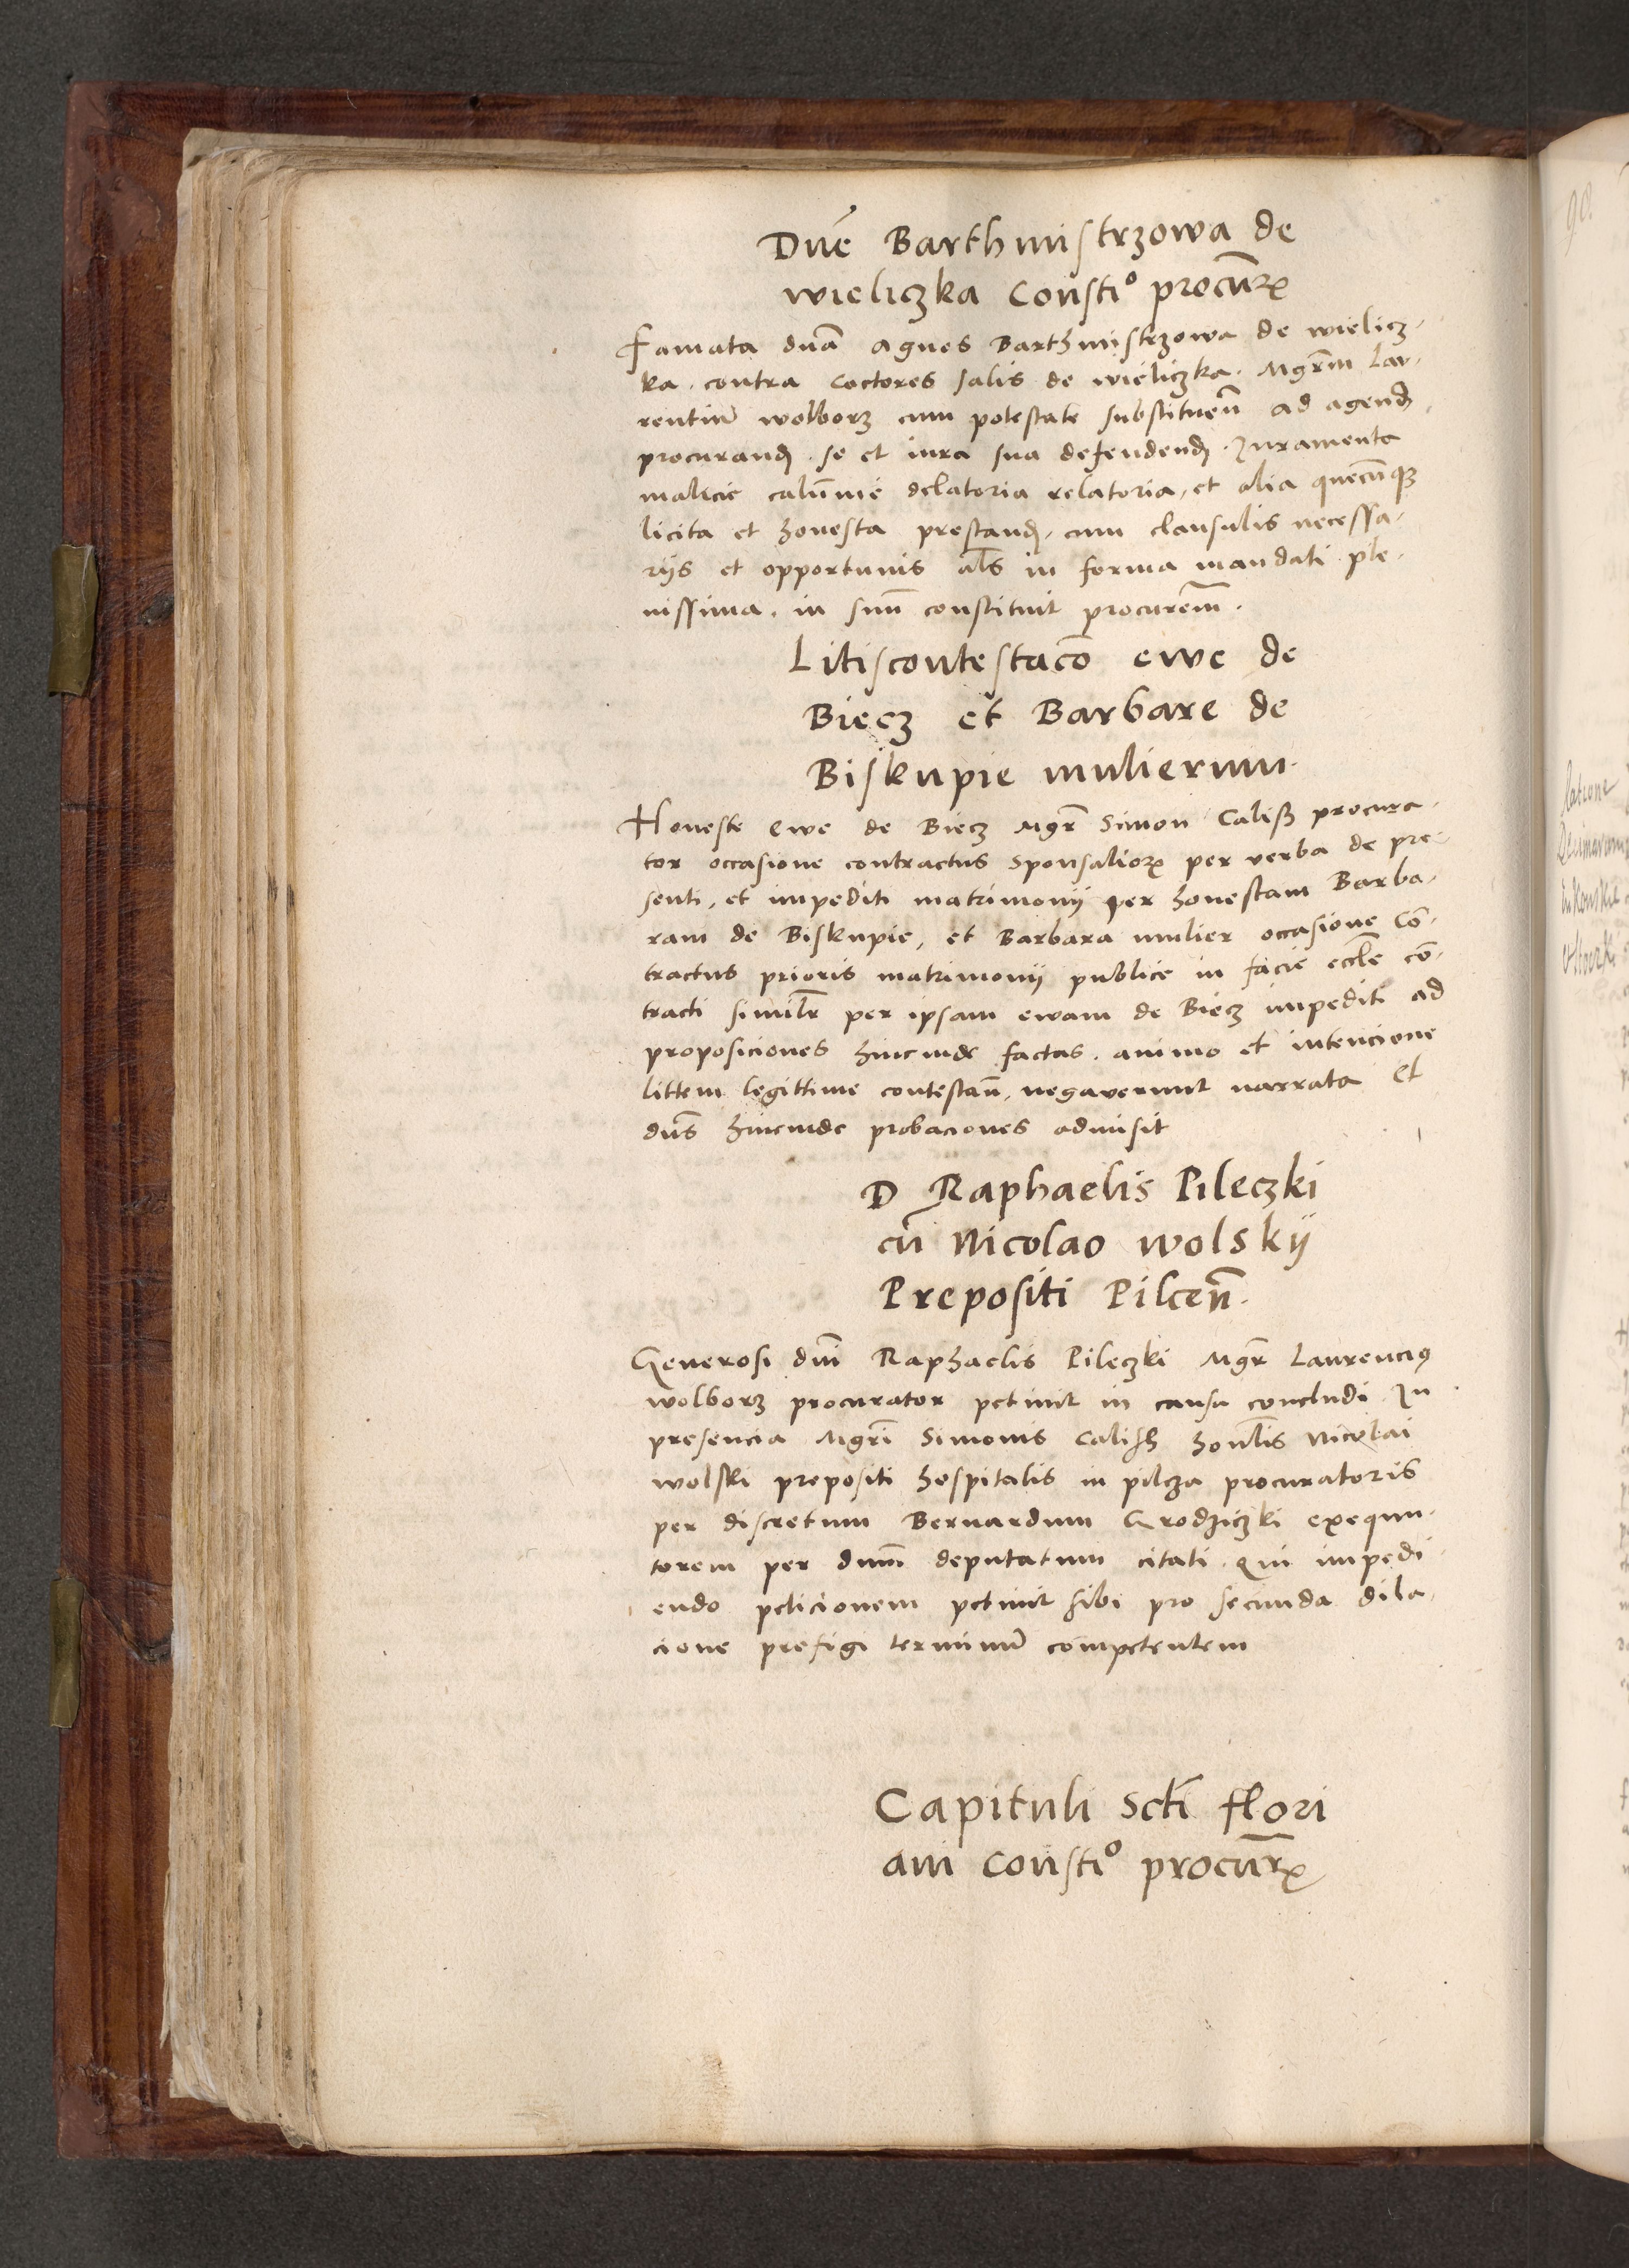 Dnē Barthmistrzowa de
wieliczka Constiº procūrꝝ
Famata dnā Agnes Barthmistrzowa de wielicz-
ka. contra coctores salis de wieliczka. Mgrm̄ Lau-
rentiū wolborz cum potestate substituen̄ ad agend̨
procurand̨. se et iura sua defendend̨. Juramenta
malicie calūnie delatoria relatoria, et alia quecūq̨
licita et honesta prestand̨. cum clausulis necessa-
rijs et opportunis als̄ in forma mandati ple-
nissima. in suū constituit procurem̄.
Litiscontestacō ewe de
Biecz et Barbare de
Biskupie mulierum.
Honeste Ewe de Biecz Mgr̄ Simon Calisß procura-
tor occasione contractus sponsaliorꝝ per verba de pre-
senti, et impediti matrimonij per honestam Barba-
ram de Biskupie, et Barbara mulier occasione Cō-
tractus prioris matrimonij publice in facie eccle̅ cō-
tracti simil̄r per ipsam ewam de Biecz impediti ad
proposiciones hincinde factas. animo et intencione
littem legittime contestan̄. negaverunt narrata Et
dn̄s hincinde probaciones admisit
D Raphaelis Pileczki
cū Nicolao wolskij
Prepositi Pilcen̄.
Generosi dnī Raphaelis Pileczki Mgr̄ Laurenciꝯ
wolborz procurator petiuit in causa concludi. In
presencia Mgrī Simonis Calisß honl̄is Nicolai
wolski prepositi hospitalis in pilcza procuratoris
per discretum Bernardum Grodziczki exequu-
torem per dnm̄ deputatum citati. Qui impedi-
endo peticionem petiuit sibi pro secunda dila-
cione prefigi terminū competentem
Capituli Sctī flori
ani Constiº procūrꝝ